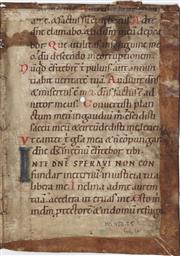 dne clamabo & ad dm meu depca
bor Que utilitas in sanguine meo
du descendo in corruptione
uid confitebit t puluis aut annun
tiabit ueritate tua Audiuit dns
& misertus e mei dns factus e ad
iutor meus Conuertisti planc
tum meu in gaudiu m conscidisti
saccu meu & circudedisti me leticia
t cantet t gla mea & n copungar
dne ds meus in etnu confitebor tibi
IN TE DNE SPERAVI NON CON
fundar in etnu in iusticia tua
libera me Inclina ad me aurem
tua accelera ut eruas me Esto m
in dm ptectore & in domu refugii